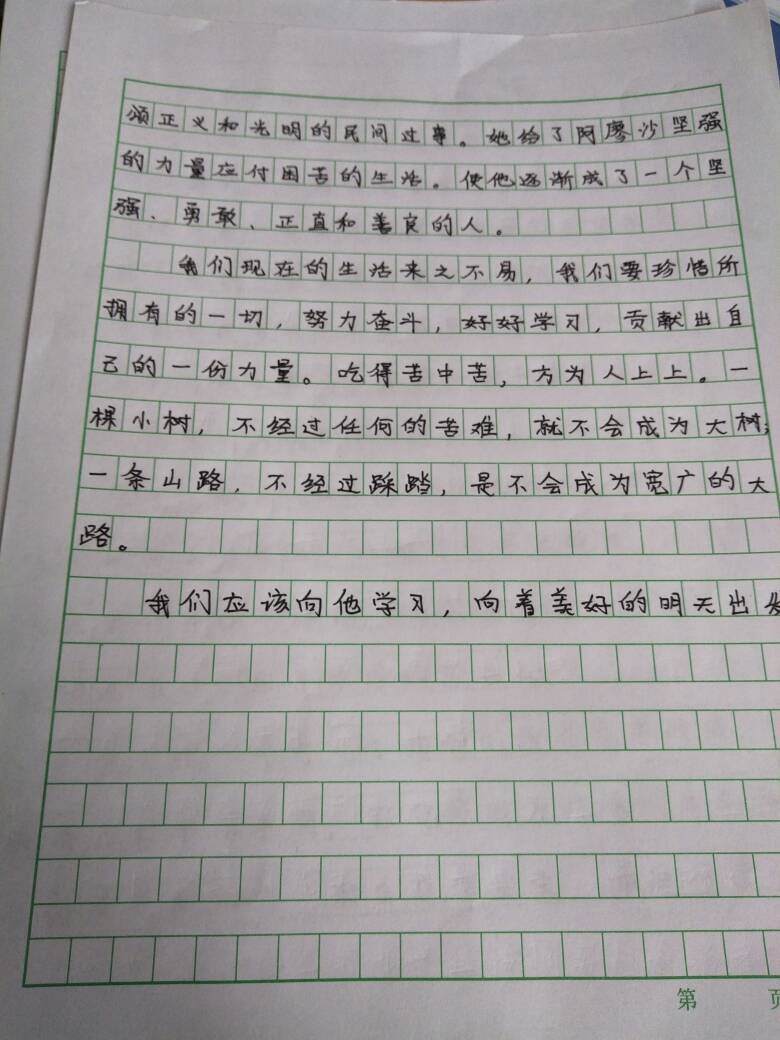 颂正义和光明的民间过事。她给了阿廖沙坚强
的力量应付困苦的生活。使他逐渐成了一个坚
强、勇敢、正直和善良的人。
我们现在的生活来之不易，我们要珍惜所
拥有的一切，努力奋斗，好好学习，贡献出自
己的一份力量。吃得苦中苦，方为人上上。一
棵小树，不经过任何的苦难，就不会成为大树；
一条山路，不经过踩踏，是不会成为宽广的大
路。
我们应该向他学习，向着美好的明天出发
第 页